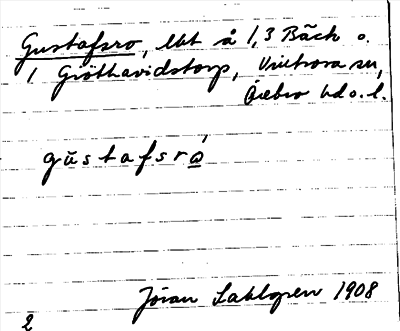 Gustafsro, lht å 1,3 Bäck o.
1 Gröthavidstorp, Vintrosa sn,
Örebro hd o. l.
gu̇stafsrọ́
Jöran Sahlgren 1908
2